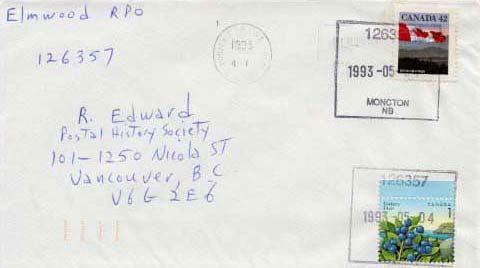 Elmwood RPO
126357
1993
CANADA 42
126357
1993-05-
MONCTON
NB
R. Edward
Postal History Society
101-1250 Nicola ST
Vancouver, B.C.
V6G 2E6
126357
CANADA
1
1993-05-04